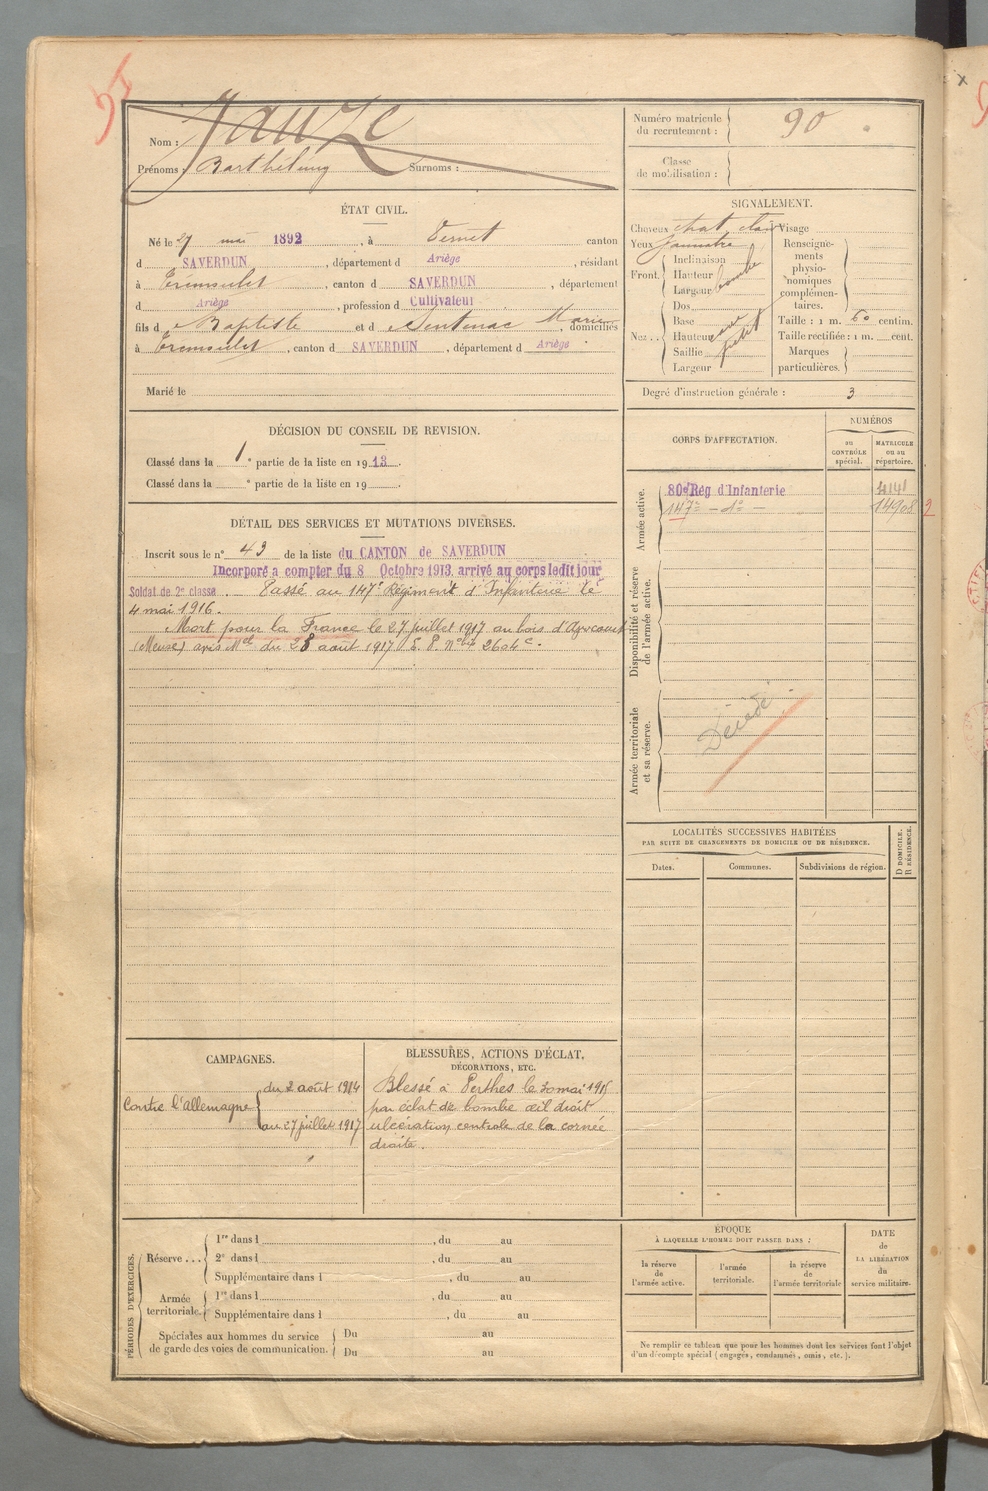 95
Nom : Jauze
Prénoms : Barthélémy Surnoms :
Numéro matricule du recrutement : 90
Classe de mobilisation :
ÉTAT CIVIL.
Né le 27 mai 1892, à Vernet canton
d SAVERDUN, département d Ariège, résidant
à Trémoulet, canton d SAVERDUN, département
d Ariège, profession d Cultivateur
fils d Baptiste et d Sentenac Marie, domiciliés
à Trémoulet, canton d SAVERDUN, département d Ariège
Marié le
SIGNALEMENT.
Cheveux chat. clair Visage
Yeux jaunâtre
Front. Inclinaison
Hauteur
Largeur
bombé
Nez... Dos
Base
Hauteur
Saillie
Largeur
petit
Renseignements physionomiques complémentaires.
Taille : 1 m. 60 centim.
Taille rectifiée : 1 m. cent.
Marques particulières.
Degré d'instruction générale : 3
DÉCISION DU CONSEIL DE REVISION.
Classé dans la 1e partie de la liste en 1913.
Classé dans la e partie de la liste en 19 .
DÉTAIL DES SERVICES ET MUTATIONS DIVERSES.
Inscrit sous le n° 43 de la liste du CANTON de SAVERDUN
Incorporé à compter du 8 Octobre 1913, arrivé au corps ledit jour
Soldat de 2e classe. Passé au 147e Régiment d'Infanterie le
4 mai 1916.
Mort pour la France le 27 juillet 1917 au bois d'Avocourt
(Meuse) avis Mel du 28 août 1917 6. P. N° 2604 c.
CORPS D'AFFECTATION.
NUMÉROS
au CONTRÔLE spécial.
MATRICULE ou au répertoire.
Armée active.
80e Rég d'Infanterie 4141
147e - do - 14908
2
Disponibilité et réserve de l'armée active.
Armée territoriale et sa réserve.
Décédé
LOCALITÉS SUCCESSIVES HABITÉES
PAR SUITE DE CHANGEMENTS DE DOMICILE OU DE RÉSIDENCE.
Dates. Communes. Subdivisions de région.
D DOMICILE. R RÉSIDENCE.
CAMPAGNES.
Contre l'Allemagne
du 2 août 1914
au 27 juillet 1917
BLESSURES, ACTIONS D'ÉCLAT,
DÉCORATIONS, ETC.
Blessé à Perthes le 20 mai 1915
par éclat de bombe œil droit
ulcération centrale de la cornée
droite.
PÉRIODES D'EXERCICES.
Réserve... 1re dans l , du au
2e dans l , du au
Supplémentaire dans l , du au
Armée territoriale. 1re dans l , du au
Supplémentaire dans l , du au
Spéciales aux hommes du service de garde des voies de communication. Du au
Du au
ÉPOQUE
À LAQUELLE L'HOMME DOIT PASSER DANS :
la réserve de l'armée active.
l'armée territoriale.
la réserve de l'armée territoriale
DATE de LA LIBÉRATION du service militaire.
Ne remplir ce tableau que pour les hommes dont les services font l'objet
d'un décompte spécial (engagés, condamnés, omis, etc.).